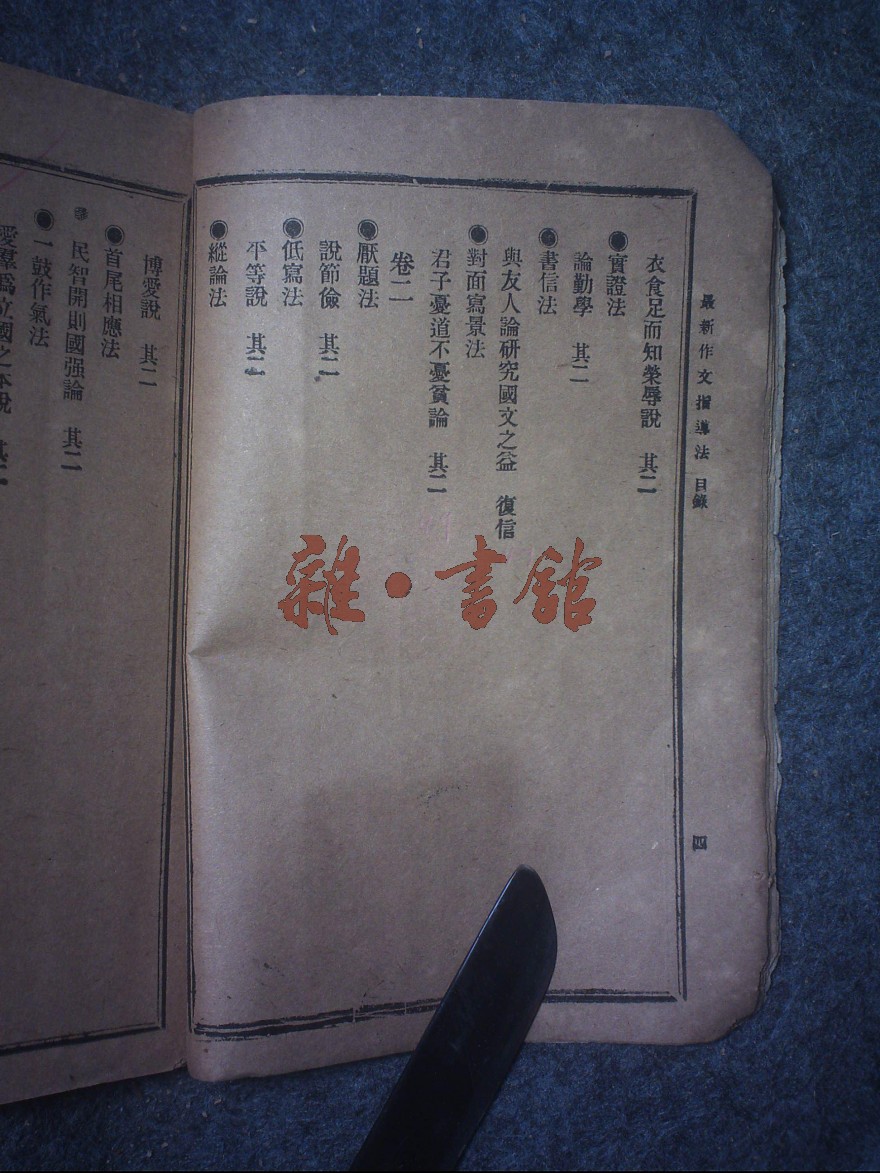 最新作文指導法 目錄
四
衣食足而知榮辱說 其二
●實證法
論勤學 其二
●書信法
與友人論研究國文之益 復信
●對面寫景法
君子憂道不憂貧論 其二
卷二
●厭題法
說節儉 其二
●低寫法
平等說 其二
●縱論法
博愛說 其二
●首尾相應法
民智開則國强論 其二
●一鼓作氣法
愛羣爲立國之本說 其二
雜·書舘